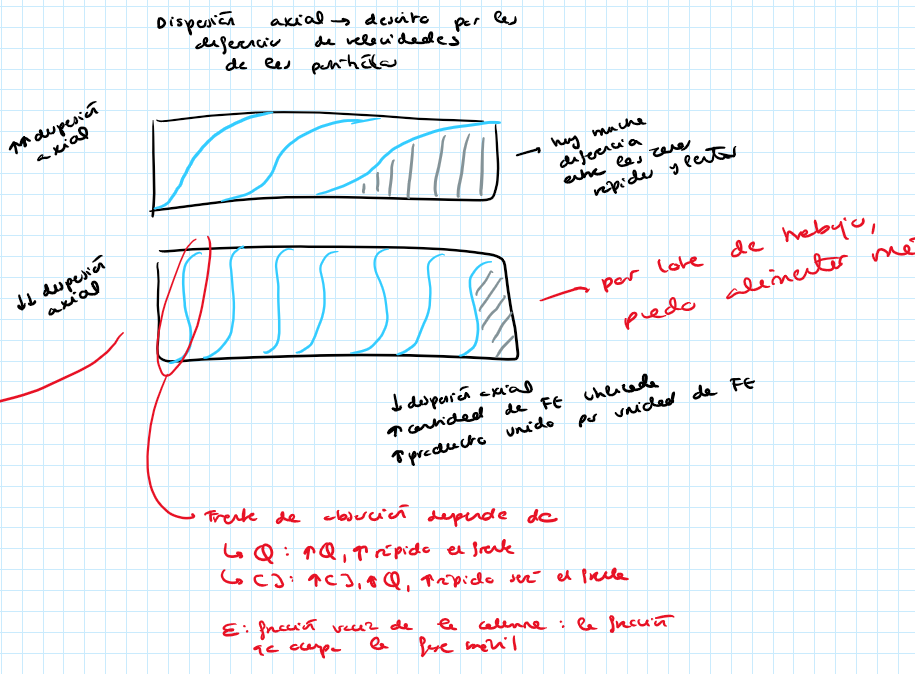 Dispersión axial → descrito por las
diferencia de velocidades
de las partículas
↑↑ dispersión
axial
→ hay mucha
diferencia
entre las zonas
rápidas y lentas
↓↓ dispersión
axial
→ por lote de trabajo,
puedo alimentar
↓ dispersión axial
↑ cantidad de FE utilizada
↑ producto unido por unidad de FE
→ Frente de absorción depende de
↳ Q : ↑Q, ↑ rápido el frente
↳ C]: ↑C], ↑Q, ↑rápido será el frente
ε: fracción vacía de la columna : la fracción
qe ocupa la fase móvil